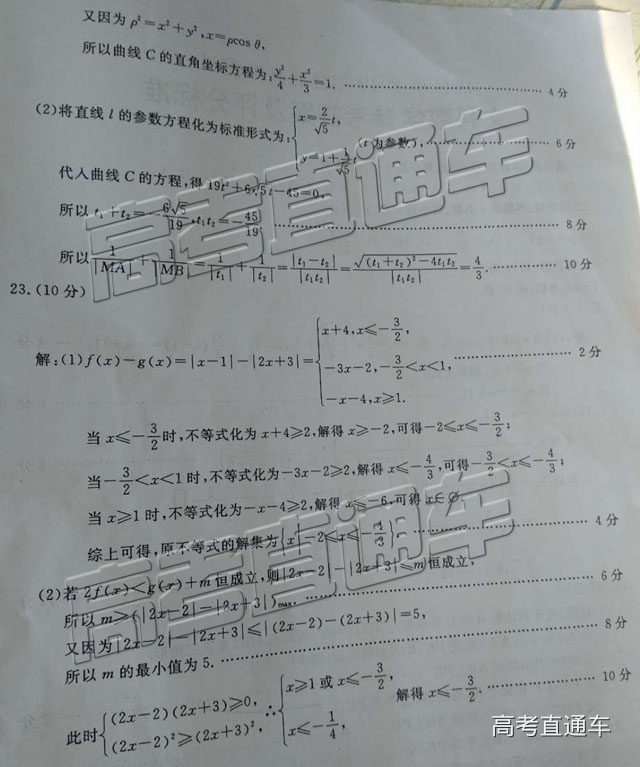 又因为ρ²=x²+y²,x=ρcos θ,
所以曲线 C 的直角坐标方程为:y²/4+x²/3=1. …… 4分
(2)将直线 l 的参数方程化为标准形式为:{x=2/√5 t, y=1+1/√5 t (t为参数), …… 6分
代入曲线 C 的方程,得 19t²+6√5t-45=0,
所以 t₁+t₂=-6√5/19,t₁t₂=-45/19, …… 8分
所以 1/|MA|+1/|MB|=1/|t₁|+1/|t₂|=|t₁-t₂|/|t₁t₂|=√((t₁+t₂)²-4t₁t₂)/|t₁t₂|=4/3. …… 10分
23.(10分)
解:(1)f(x)-g(x)=|x-1|-|2x+3|={x+4,x≤-3/2, -3x-2,-3/2<x<1, -x-4,x≥1. …… 2分
当 x≤-3/2时,不等式化为 x+4≥2,解得 x≥-2,可得-2≤x≤-3/2;
当-3/2<x<1时,不等式化为-3x-2≥2,解得 x≤-4/3,可得-3/2<x≤-4/3;
当 x≥1时,不等式化为-x-4≥2,解得 x≤-6,可得 x∈∅,
综上可得,原不等式的解集为{x|-2≤x≤-4/3}. …… 4分
(2)若 2f(x)≤g(x)+m恒成立,则|2x-2|-|2x+3|≤m恒成立,
所以 m≥(|2x-2|-|2x+3|)max. …… 6分
又因为|2x-2|-|2x+3|≤|(2x-2)-(2x+3)|=5,
所以 m 的最小值为 5. …… 8分
此时{(2x-2)(2x+3)≥0, (2x-2)²≥(2x+3)², ∴{x≥1或 x≤-3/2, x≤-1/4, 解得 x≤-3/2. …… 10分
高考直通车
高考直通车
高考直通车